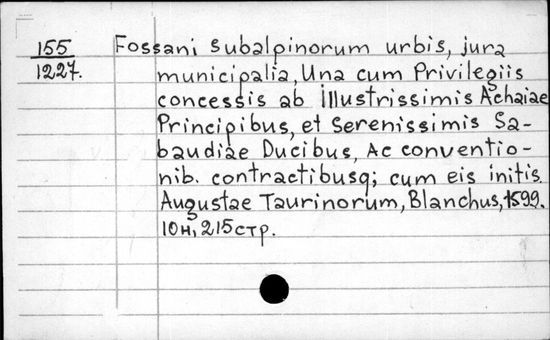 155
1227.
Fossani subalpinorum urbis, jura
municipalia, Una cum Privilegiis
concessis ab illustrissimis Achaiae
Principibus, et Serenissimis Sa-
baudiae Ducibus, Ac conventio-
nib. contractibusq; cum eis initis
Augustae Taurinorum, Blanchus, 1599.
10н, 215стр.